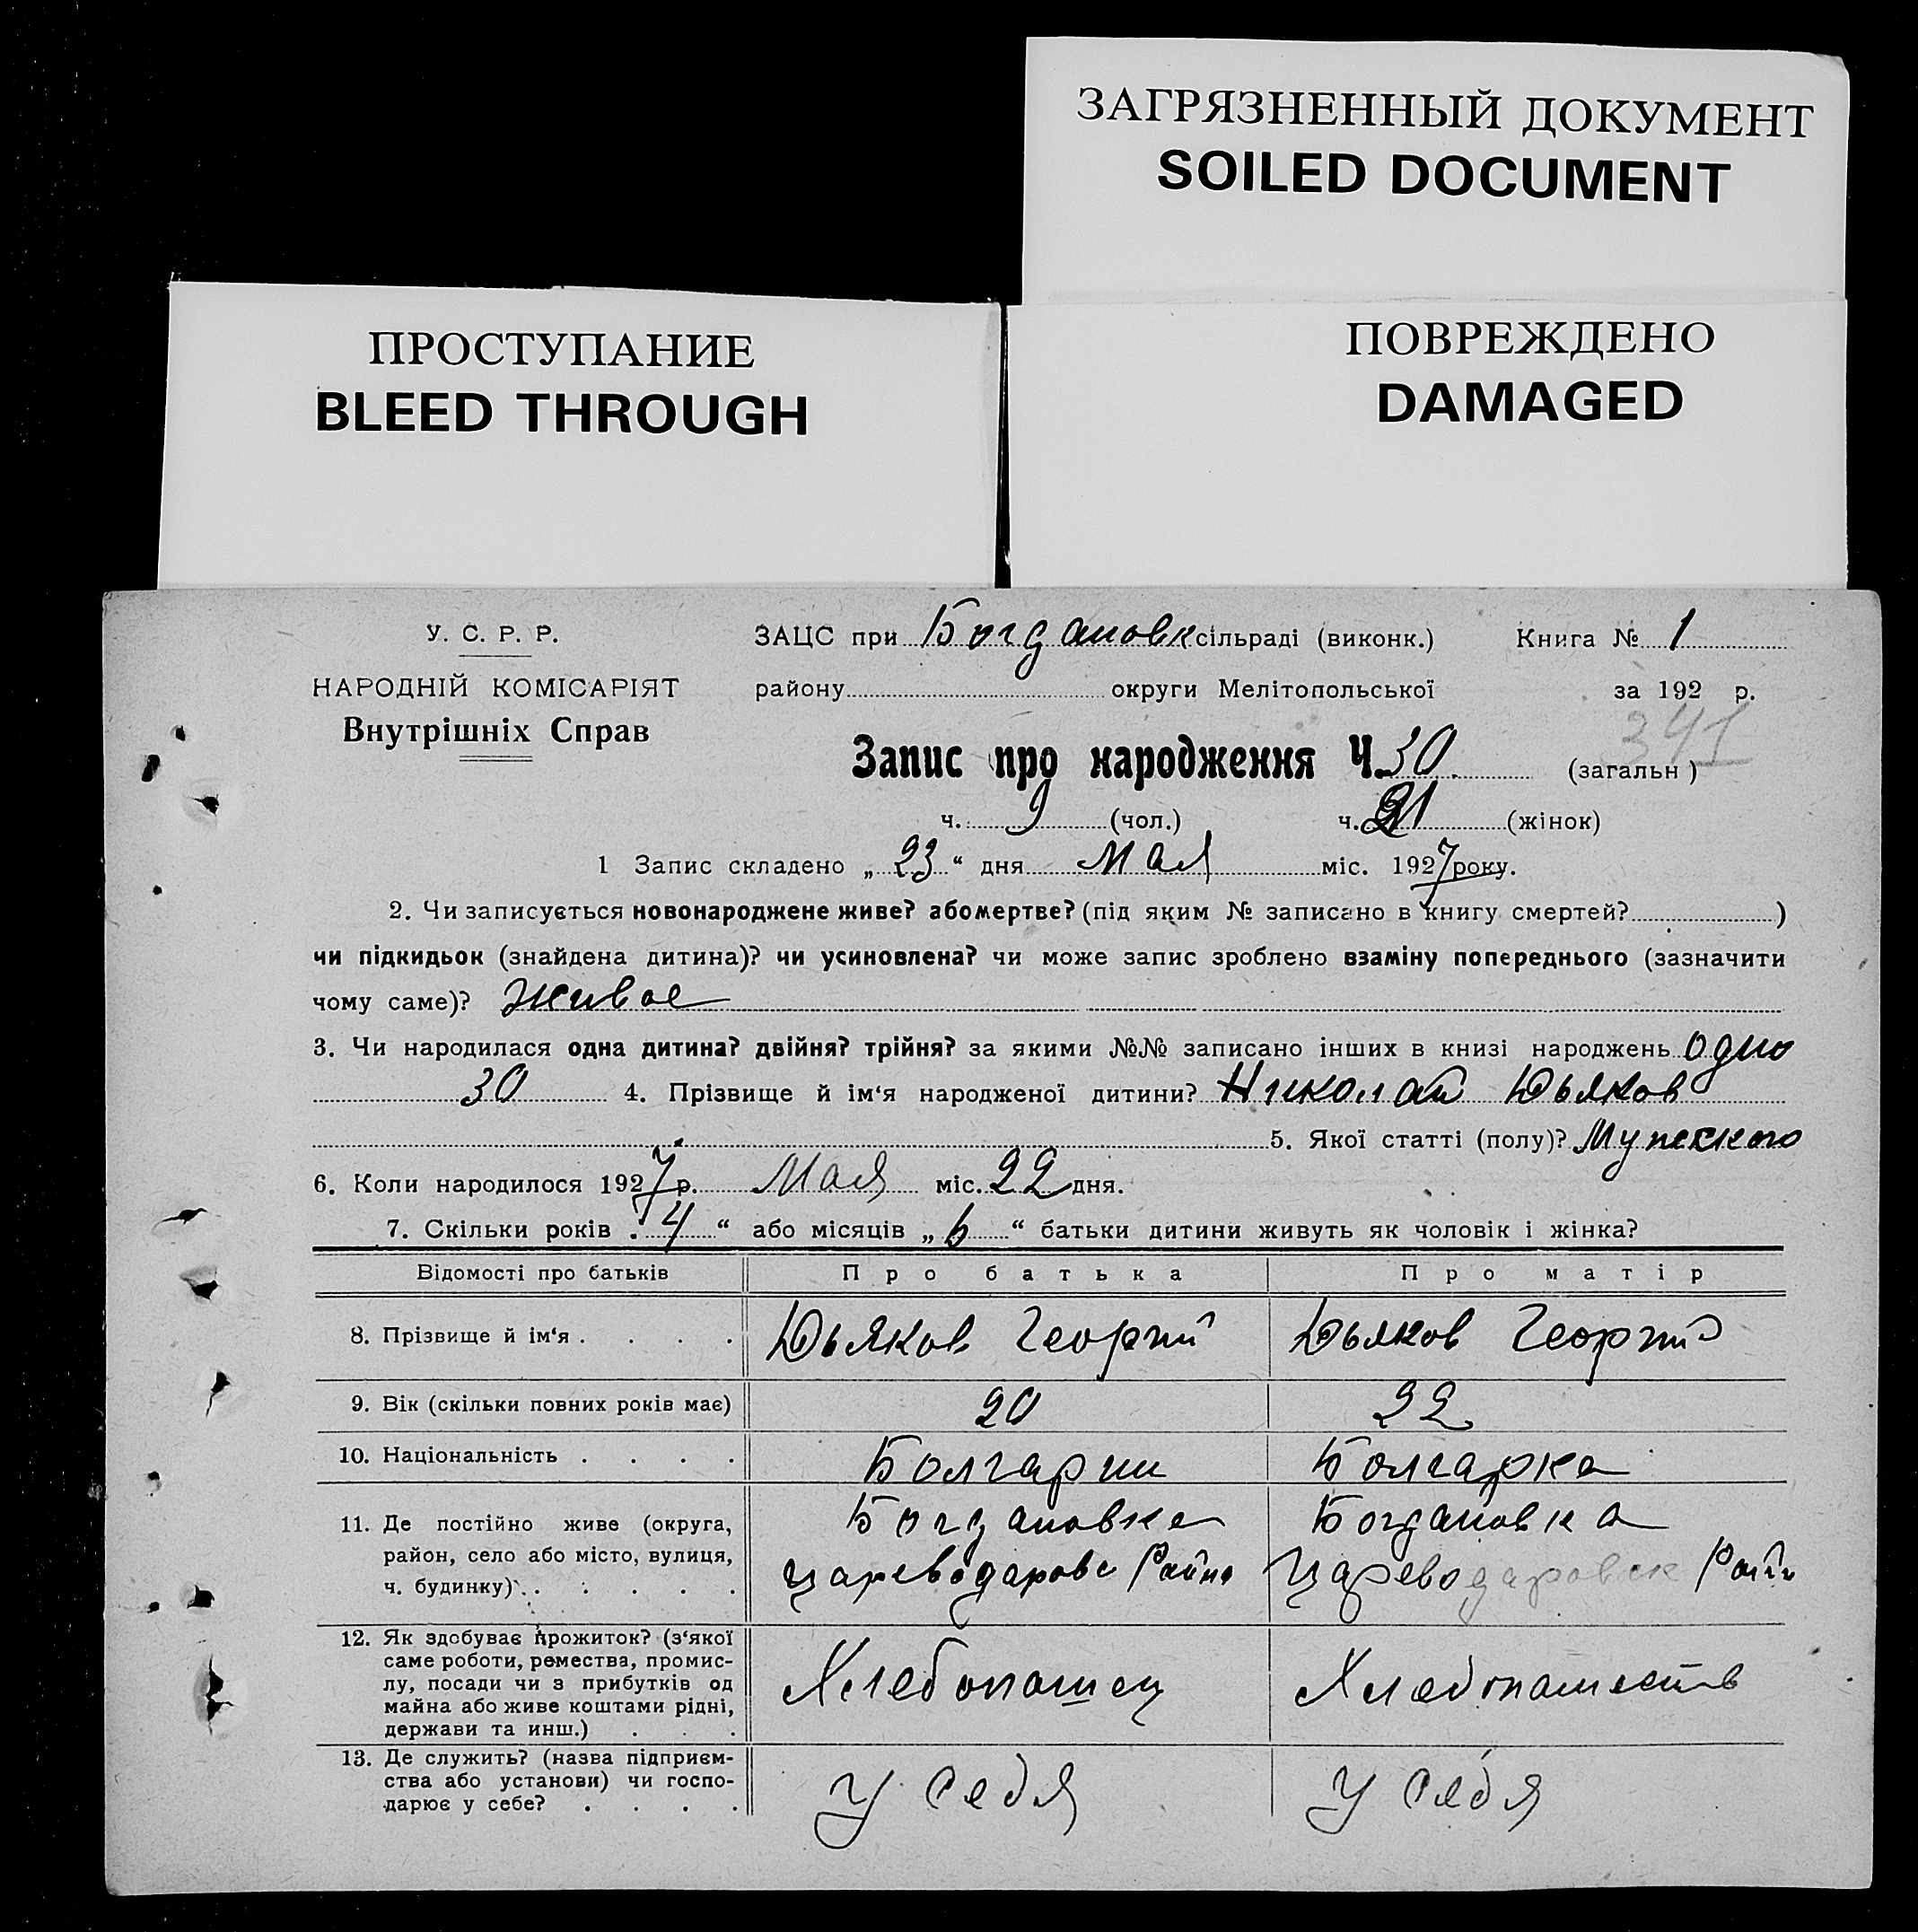 ЗАГРЯЗНЕННЫЙ ДОКУМЕНТ
SOILED DOCUMENT
ПРОСТУПАНИЕ
BLEED THROUGH
ПОВРЕЖДЕНО
DAMAGED
У. С. Р. Р.
НАРОДНІЙ КОМІСАРІЯТ
Внутрішніх Справ
ЗАЦС при Богдановк сільраді (виконк.) Книга № 1
району округи Мелітопольської за 192 р.
341
Запис про народження Ч. 30 (загальн)
ч. 9 (чол.) ч. 21 (жінок)
1 Запис складено „23“ дня Мая міс. 1927 року.
2. Чи записується новонароджене живе? або мертве? (під яким № записано в книгу смертей? )
чи підкидьок (знайдена дитина)? чи усиновлена? чи може запис зроблено взаміну попереднього (зазначити
чому саме)? Живое
3. Чи народилася одна дитина? двійня? трійня? за якими №№ записано інших в книзі народжень одно
30 4. Прізвище й ім'я народженої дитини? Николай Дьяков
5. Якої статті (полу)? Мужского
6. Коли народилося 1927 р. Мая міс. 22 дня.
7. Скільки років „4“ або місяців „6“ батьки дитини живуть як чоловік і жінка?
Відомості про батьків Про батька Про матір
8. Прізвище й ім'я . . . . Дьяков Георгий Дьяков Георгий
9. Вік (скільки повних років має) 20 22
10. Національність . . . . Болгарин Болгарка
11. Де постійно живе (округа, Богдановка Богдановка
район, село або місто, вулиця, Цареводаровс Райна Цареводаровск Райн
ч. будинку) . . . . .
12. Як здобуває прожиток? (з'якої
саме роботи, ремества, промис-
лу, посади чи з прибутків од Хлебопашец
майна або живе коштами рідні,
держави та инш.) . . .
13. Де служить? (назва підприєм-
ства або установи) чи госпо- у себя у себя
дарює у себе? . . . .